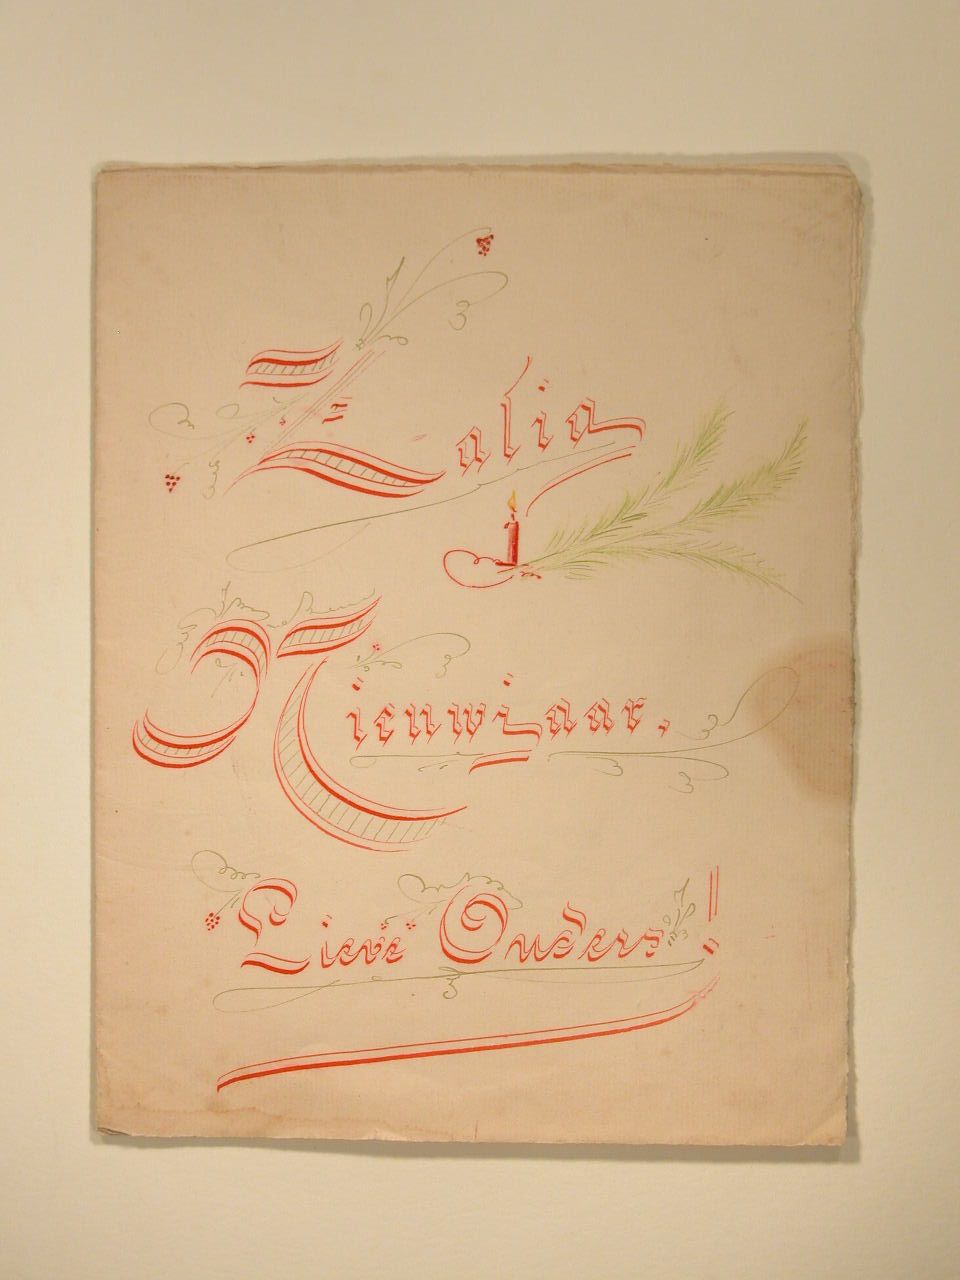 Zalig
Nieuwjaar,
Lieve Ouders!